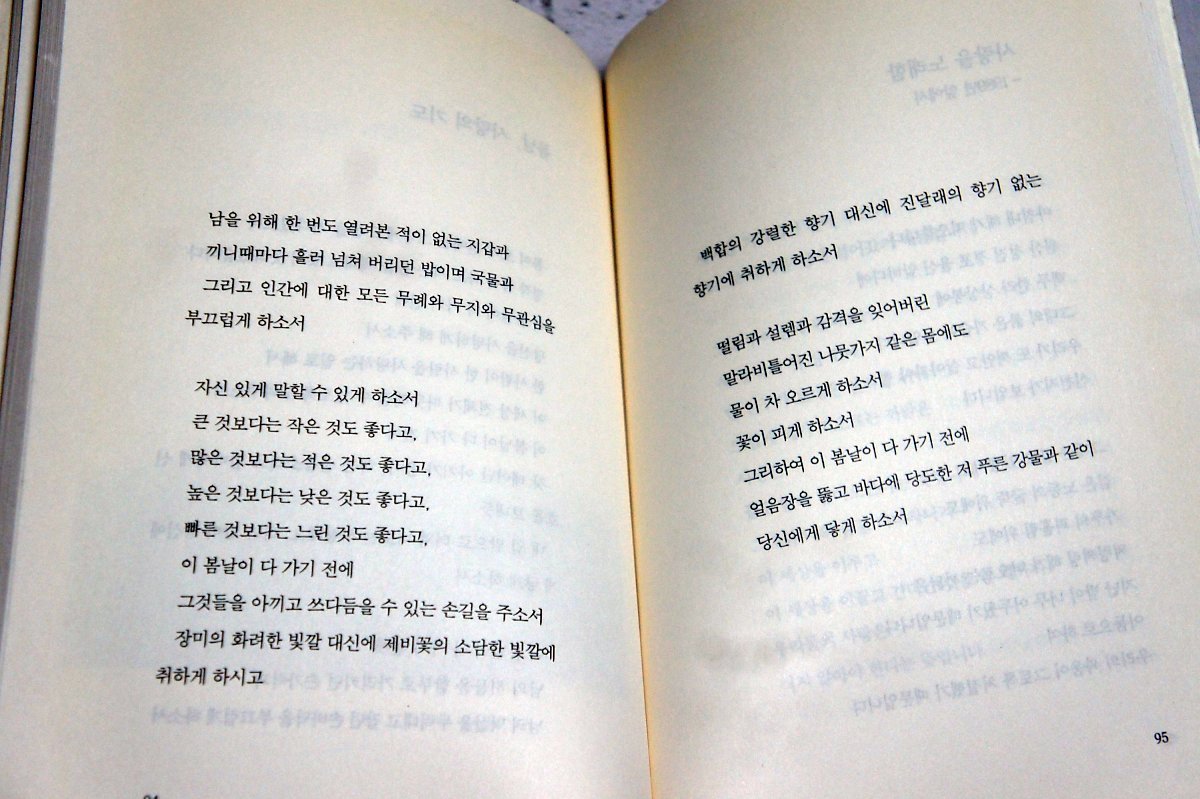 남을 위해 한 번도 열려본 적이 없는 지갑과
끼니때마다 흘러 넘쳐 버리던 밥이며 국물과
그리고 인간에 대한 모든 무례와 무지와 무관심을
부끄럽게 하소서
자신 있게 말할 수 있게 하소서
큰 것보다는 작은 것도 좋다고,
많은 것보다는 적은 것도 좋다고,
높은 것보다는 낮은 것도 좋다고,
빠른 것보다는 느린 것도 좋다고,
이 봄날이 다 가기 전에
그것들을 아끼고 쓰다듬을 수 있는 손길을 주소서
장미의 화려한 빛깔 대신에 제비꽃의 소담한 빛깔에
취하게 하시고
백합의 강렬한 향기 대신에 진달래의 향기 없는
향기에 취하게 하소서
떨림과 설렘과 감격을 잊어버린
말라비틀어진 나뭇가지 같은 몸에도
물이 차 오르게 하소서
꽃이 피게 하소서
그리하여 이 봄날이 다 가기 전에
얼음장을 뚫고 바다에 당도한 저 푸른 강물과 같이
당신에게 닿게 하소서
95